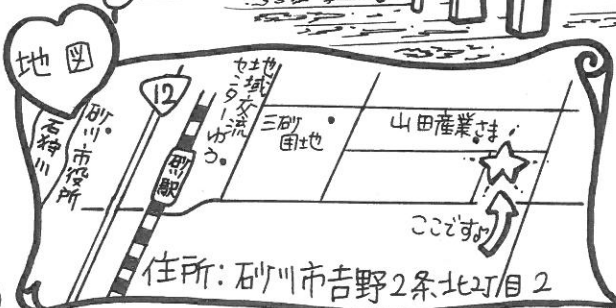 地図
石狩川
砂川市役所
12
砂川駅
地域交流
センターゆう
三砂
団地
山田産業さま
ここです♪
住所:砂川市吉野2条北2丁目2